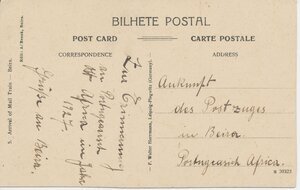 BILHETE POSTAL
POST CARD
CARTE POSTALE
CORRESPONDENCE
ADDRESS
Zur Erinnerung
an Portugiesisch
Ost Afrika im Jahre
1927.
Grüße an Beira.
Ankunft
des Postzuges
in Beira.
Portugiesisch Africa.
5. Arrival of Mail Train — Beira.
F. Walter Herrmann, Leipzig-Plagwitz (Germany).